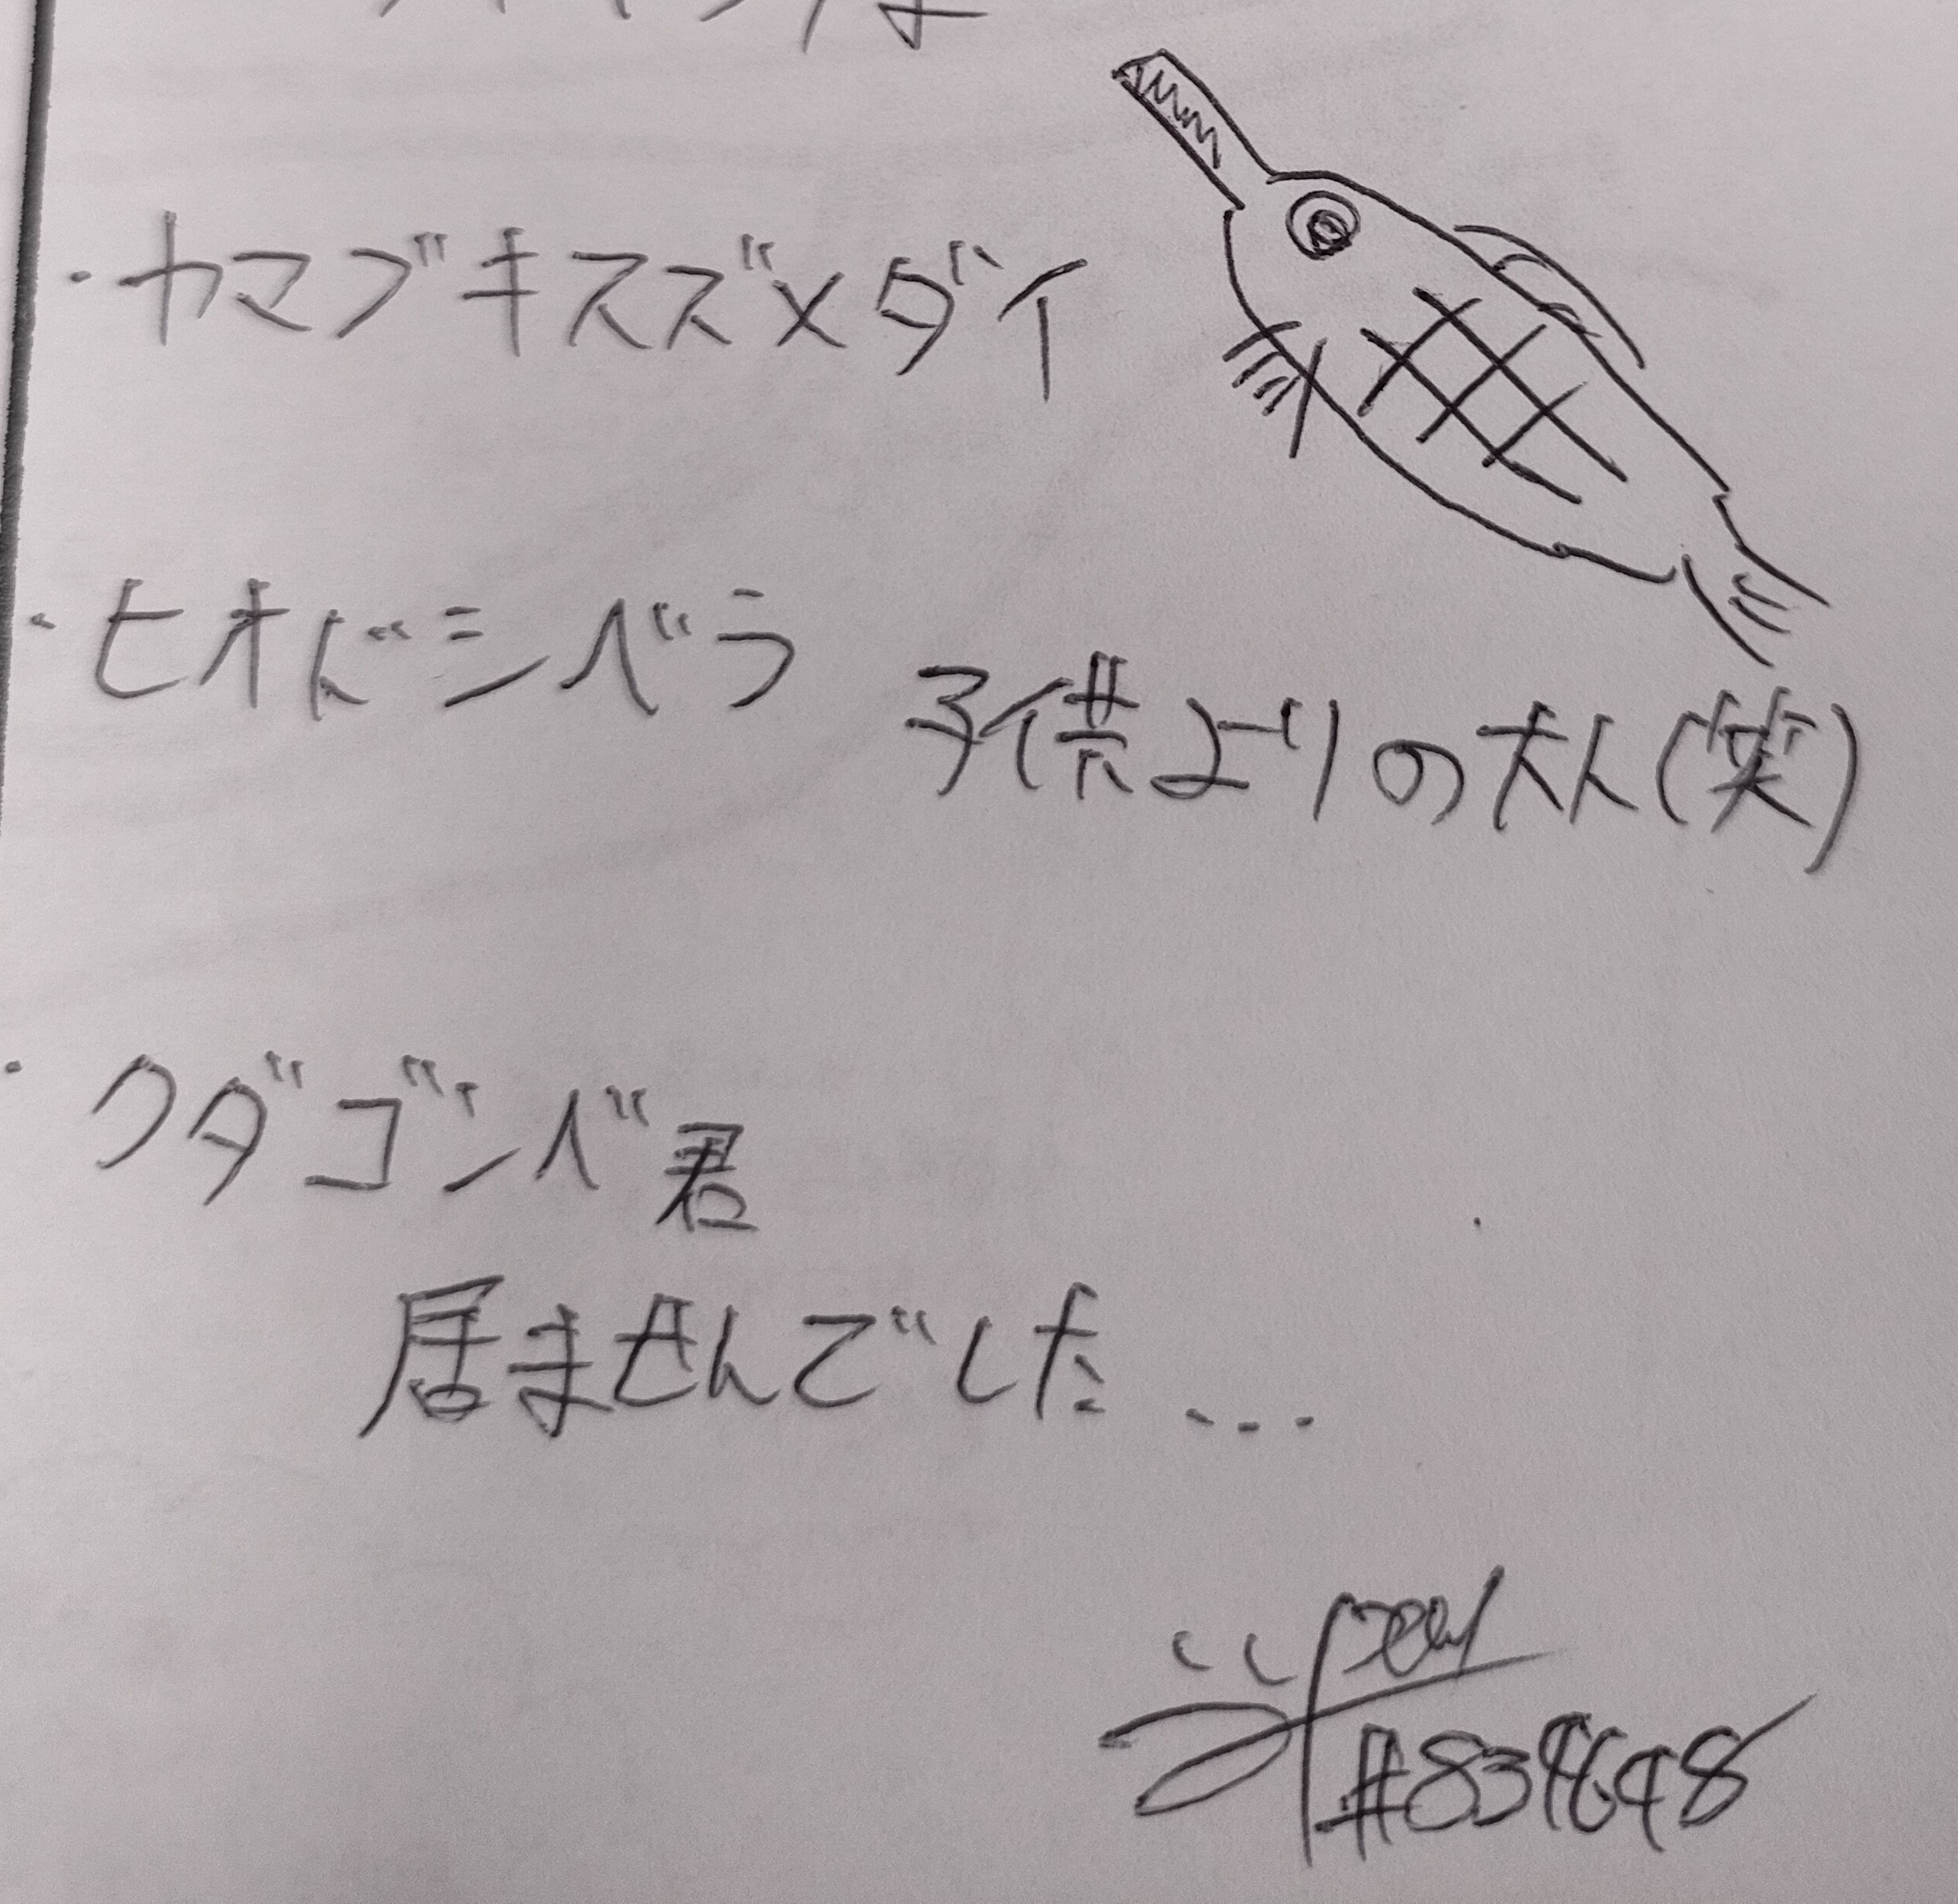 ・ヤマブキスズメダイ
・ヒオドシベラ 子供よりの大人(笑)
・クダゴンベ君
居ませんでした...
#834648